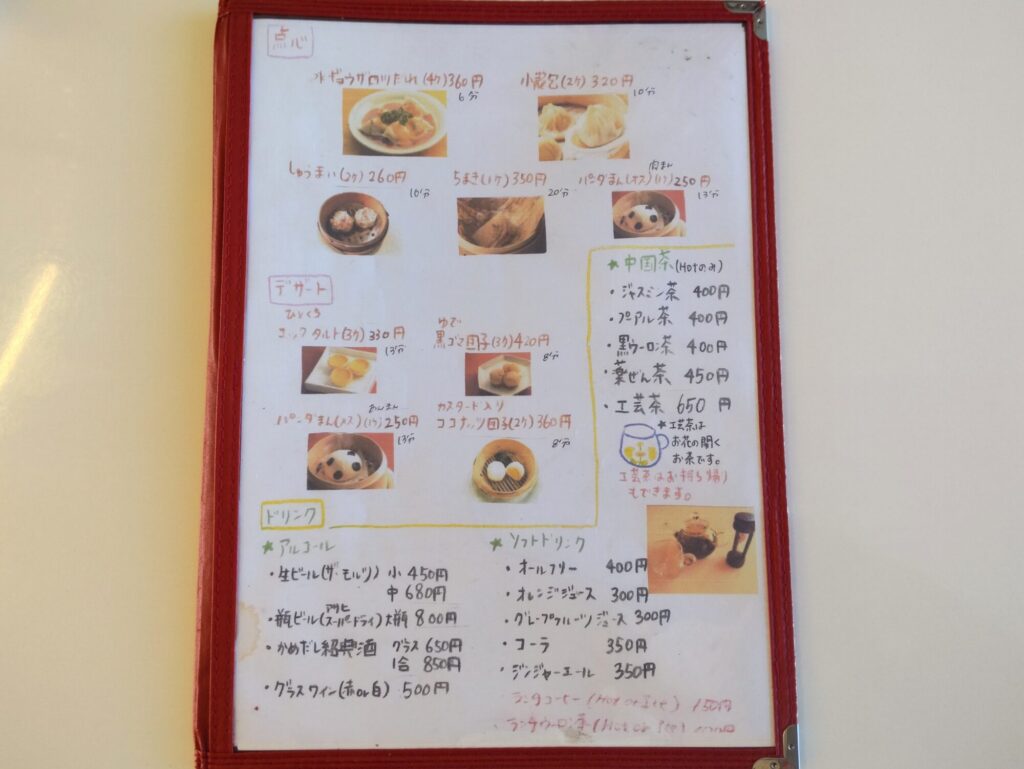 点心
水ギョウザ ロツだれ(4ケ)360円
6分
小籠包(2ケ) 320円
10分
しゅうまい(2ケ)260円
10分
ちまき(1ケ)350円
20分
肉まん
パンダまん(オス)(1ケ)250円
13分
デザート
ひとくち
エッグタルト(3ケ)330円
13分
ゆで
黒ゴマ団子(3ケ)420円
8分
あんまん
パンダまん(メス)(1ケ)250円
13分
カスタード入り
ココナッツ団子(2ケ)360円
8分
★中国茶(Hotのみ)
・ジャスミン茶 400円
・プアル茶 400円
・黒ウーロン茶 400円
・薬ぜん茶 450円
・工芸茶 650円
★工芸茶は
お花の開く
お茶です。
工芸茶はお持ち帰り
もできます。
ドリンク
★アルコール
・生ビール(ザ・モルツ) 小 450円
中 680円
・瓶ビール(アサヒスーパードライ)大瓶 800円
・かめだし紹興酒 グラス 650円
1合 850円
・グラスワイン(赤or白) 500円
★ソフトドリンク
・オールフリー 400円
・オレンジジュース 300円
・グレープフルーツジュース 300円
・コーラ 350円
・ジンジャーエール 350円
ランチコーヒー(Hot or Ice) 150円
ランチウーロン茶(Hot or Ice)